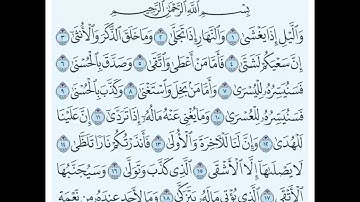 بِسْمِ اللَّهِ الرَّحْمَٰنِ الرَّحِيمِ
وَالَّيْلِ إِذَا يَغْشَىٰ ١ وَالنَّهَارِ إِذَا تَجَلَّىٰ ٢ وَمَا خَلَقَ الذَّكَرَ وَالْأُنثَىٰ ٣
إِنَّ سَعْيَكُمْ لَشَتَّىٰ ٤ فَأَمَّا مَنْ أَعْطَىٰ وَاتَّقَىٰ ٥ وَصَدَّقَ بِالْحُسْنَىٰ ٦
فَسَنُيَسِّرُهُ لِلْيُسْرَىٰ ٧ وَأَمَّا مَن بَخِلَ وَاسْتَغْنَىٰ ٨ وَكَذَّبَ بِالْحُسْنَىٰ ٩
فَسَنُيَسِّرُهُ لِلْعُسْرَىٰ ١٠ وَمَا يُغْنِي عَنْهُ مَالُهُ إِذَا تَرَدَّىٰ ١١ إِنَّ عَلَيْنَا
لَلْهُدَىٰ ١٢ وَإِنَّ لَنَا لَلْآخِرَةَ وَالْأُولَىٰ ١٣ فَأَنذَرْتُكُمْ نَارًا تَلَظَّىٰ ١٤
لَا يَصْلَاهَا إِلَّا الْأَشْقَى ١٥ الَّذِي كَذَّبَ وَتَوَلَّىٰ ١٦ وَسَيُجَنَّبُهَا
الْأَتْقَى ١٧ الَّذِي يُؤْتِي مَالَهُ يَتَزَكَّىٰ ١٨ وَمَا لِأَحَدٍ عِندَهُ مِن نِّعْمَةٍ